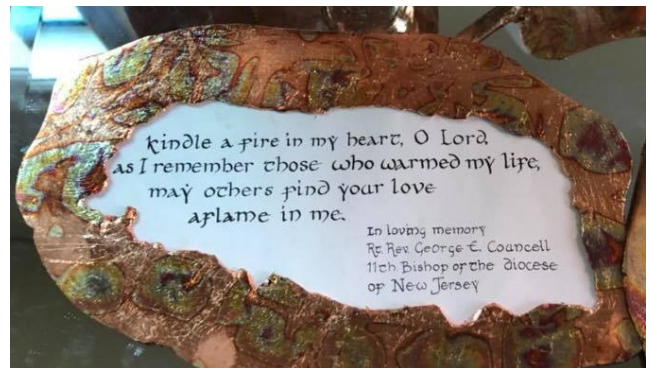 kindle a fire in my heart, O Lord,
as I remember those who warmed my life,
may others find your love
aflame in me.
In loving memory
Rt. Rev. George E. Councell
11th Bishop of the diocese
of New Jersey